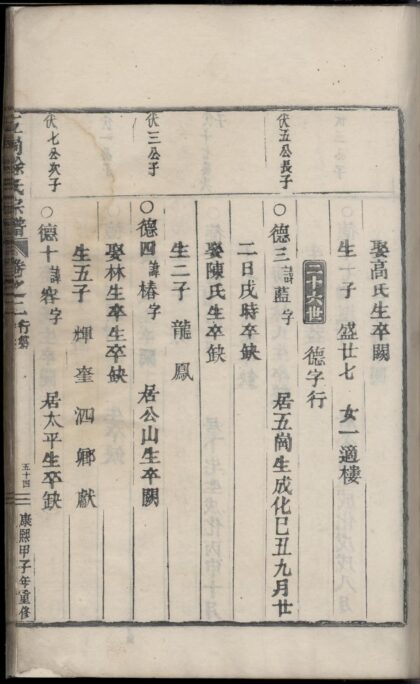 娶高氏生卒闕
生一子　盛廿七　女一適樓
二十六世　德字行
伏五公長子
○德三諱藍字　居五崗生成化己丑九月廿
二日戌時卒缺
娶陳氏生卒缺
生二子　龍　鳳
伏三公子
○德四諱椿字　居公山生卒闕
娶林生卒生卒缺
生五子　煇　奎　泗　鄉　獻
伏七公次子
○德十諱容字　居太平生卒缺
五崗徐氏宗譜　卷之二　行第　五十四　康熙甲子年重修